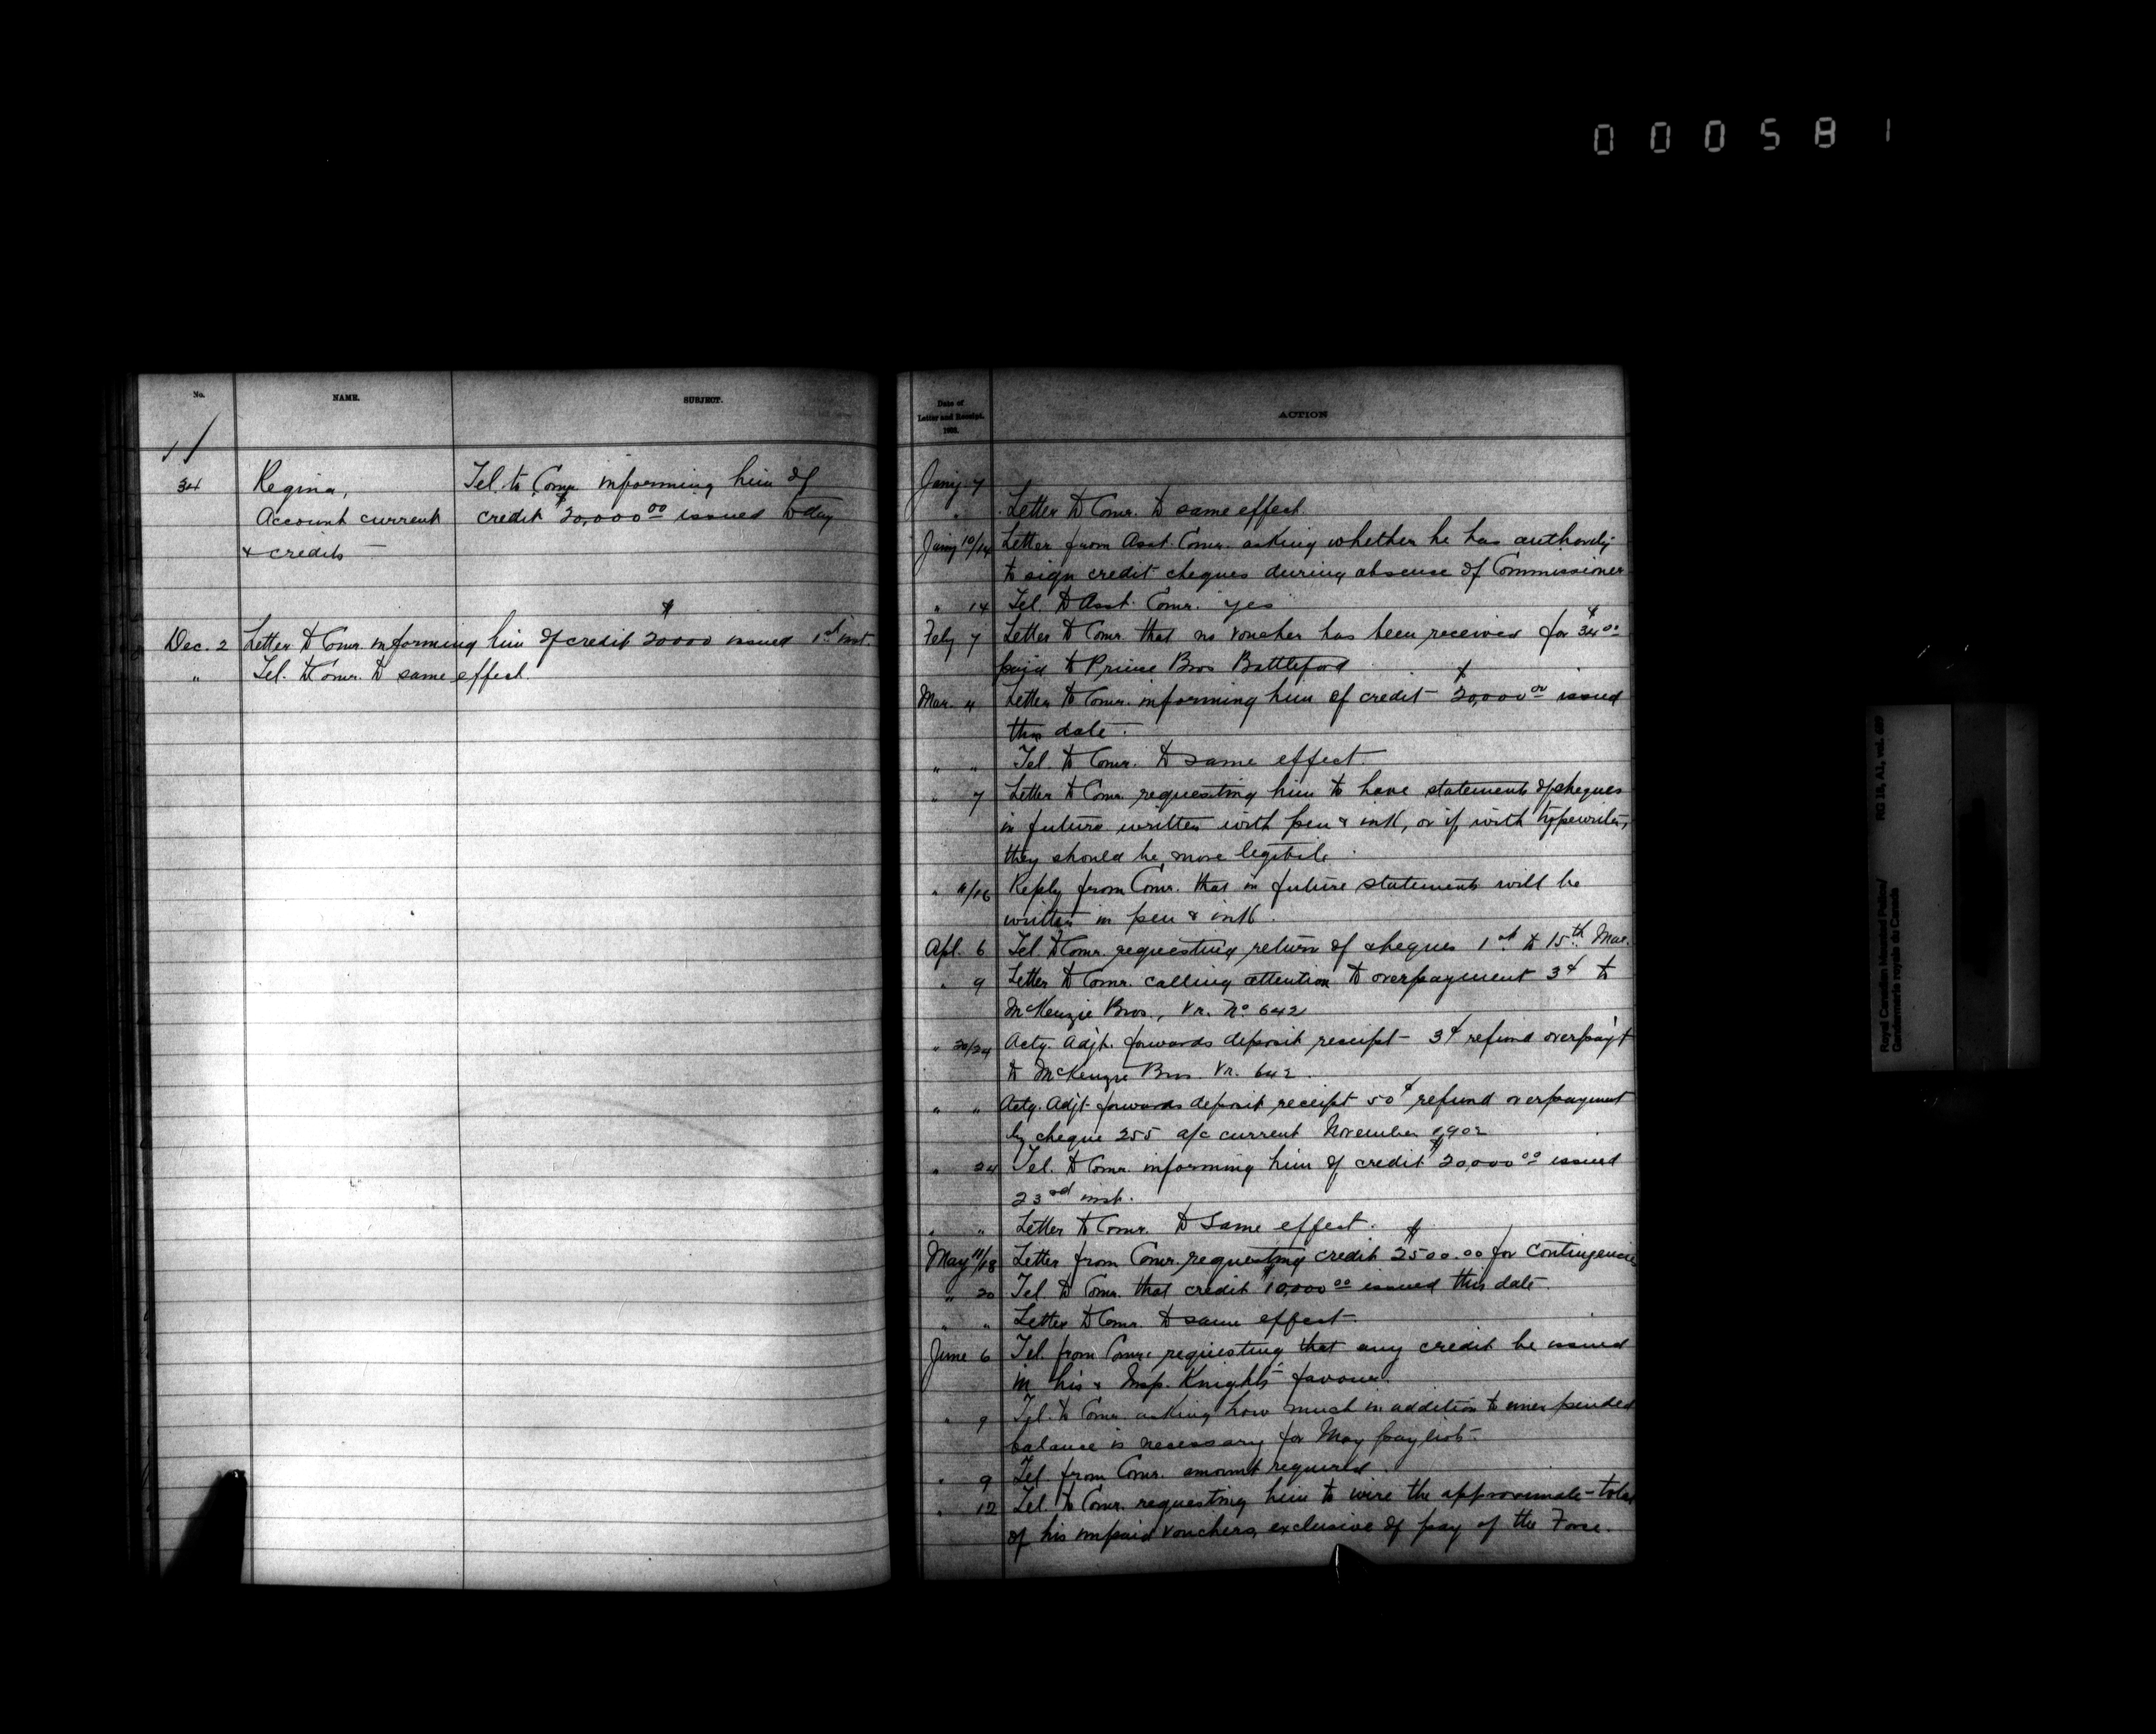 000581
No.
NAME.
SUBJECT.
34
Regina,
Account current
& credits —
Tel. to Comr. informing him of
credit $20,000 00 issued today
Dec. 2 Letter to Comr. informing him of credit $20000 issued 1st inst.
" Tel. to Comr. to same effect.
Date of
Letter and Receipt.
ACTION
Jany. 7
" Letter to Comr. to same effect.
Jany 10/14 Letter from Asst. Comr. asking whether he has authority
to sign credit cheques during absense of Commissioner
" 14 Tel. to Asst. Comr. yes
Feby 7 Letter to Comr. that no voucher has been received for $34 00
paid to Prince Bros Battleford
Mar. 4 Letter to Comr. informing him of credit $20,000 00 issued
this date.
" " Tel. to Comr. to same effect.
" 7 Letter to Comr. requesting him to have statements of cheques
in future written with pen & ink, or if with typewriter,
they should be more legible.
" 11/16 Reply from Comr. that in future statements will be
written in pen & ink.
Apl. 6 Tel. to Comr. requesting return of cheques 1st to 15th Mar.
" 9 Letter to Comr. calling attention to overpayment 3¢ to
McKenzie Bros., Vr. No 642
" 20/24 Actg. Adjt. forwards deposit receipt — 3¢ refund overpay't
to McKenzie Bros. Vr. 642.
" " Actg. Adjt. forwards deposit receipt 50¢ refund overpayment
by cheque 255 a/c current November 1902
" 24 Tel. to Comr. informing him of credit $20,000 00 issued
23rd inst.
" " Letter to Comr. to same effect.
May 11/18 Letter from Comr. requesting credit $2500.00 for Contingencies
" 20 Tel to Comr. that credit $10,000 00 issued this date.
" " Letter to Comr. to same effect.
June 6 Tel. from Comr. requesting that any credit be issued
in his & Insp. Knight's favour.
" 9 Tel. to Comr. asking how much in addition to unexpended
balance is necessary for May paylist.
" 9 Tel from Comr. amount required.
" 12 Tel. to Comr. requesting him to wire the approximate total
of his unpaid vouchers, exclusive of pay of the Force.
Royal Canadian Mounted Police/
Gendarmerie royale du Canada
RG 18, A1, vol.